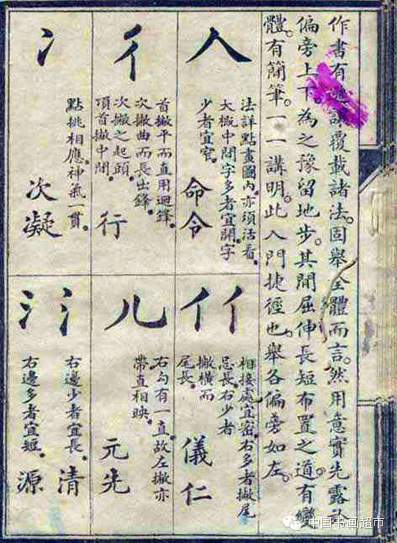 作書有避讓覆載諸法。固舉全體而言。然用意實先露
偏旁上下。為之豫留地步。其間屈伸長短布置之道。有變
體。有簡筆。一一講明。此入門捷徑也。舉各偏旁如左。
人
法詳點畫圖內。亦須活看。
大概中間字多者宜開。字
少者宜窄。
命令
彳
首撇平而直用迴鋒。
次撇曲而長出鋒。
次撇之起頭。
項首撇中間。
行
冫
點挑相應。神氣一貫。
次凝
亻亻
相接處宜密。右多者撇尾
忌長。右少者
撇橫而
尾長。
儀仁
儿
右勾有一直。故左撇亦
帶直相映。
元先
氵氵
右邊少者宜長。清
右邊多者宜短。源
中国书画超市